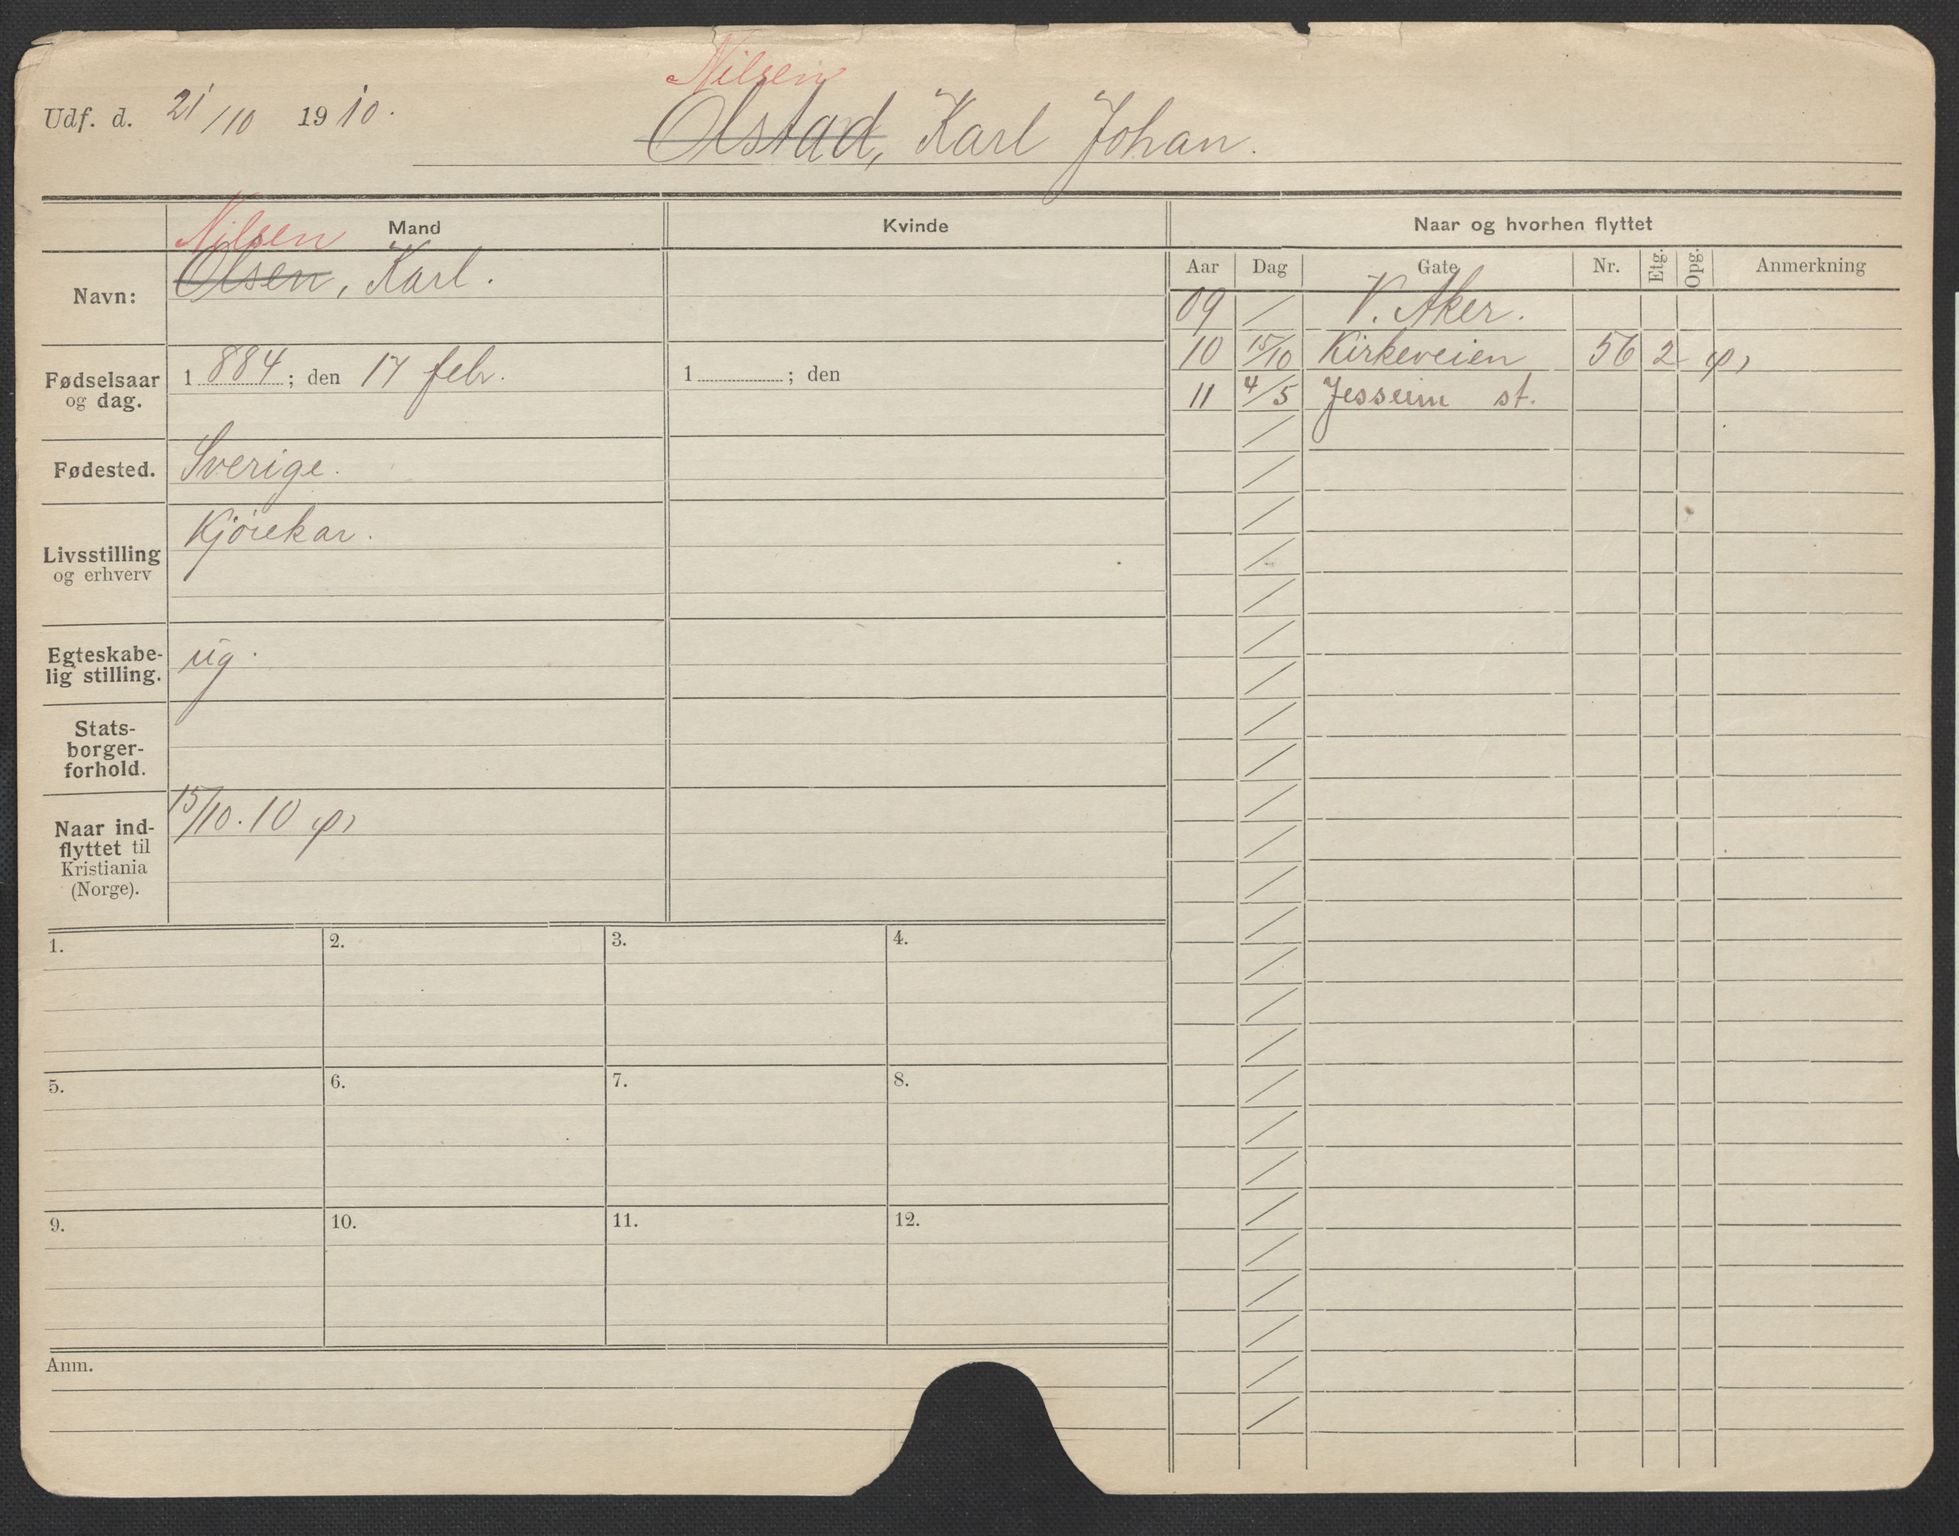 Nilsen
Udf. d. 21/10 1910. Olstad, Karl Johan.
Mand Kvinde Naar og hvorhen flyttet
Nilsen
Navn: Olsen, Karl.
Aar Dag Gate Nr. Etg. Opg. Anmerkning
09 / V. Aker.
10 15/10 Kirkeveien 56 2
11 4/5 Jesseim st.
Fødselsaar og dag. 1884; den 17 febr. 1 ; den
Fødested. Sverige.
Livsstilling og erhverv Kjørekar.
Egteskabe-
lig stilling. ug.
Stats-
borger-
forhold.
Naar ind-
flyttet til
Kristiania
(Norge). 15/10.10
1. 2. 3. 4.
5. 6. 7. 8.
9. 10. 11. 12.
Anm.